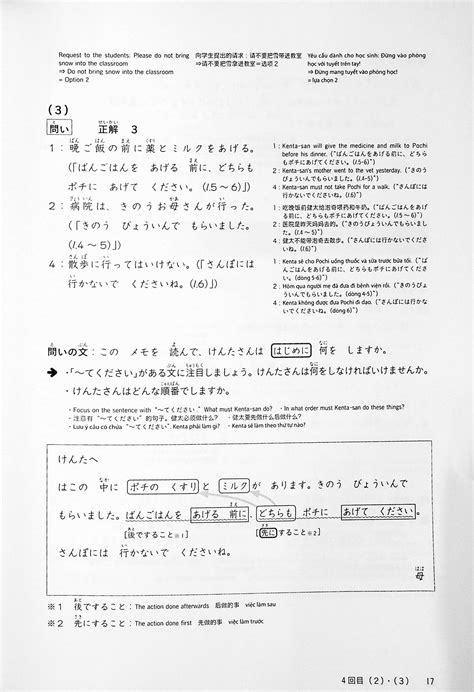 Request to the students: Please do not bring
snow into the classroom
⇒ Do not bring snow into the classroom
= Option 2
向学生提出的请求:请不要把雪带进教室
⇒请不要把雪拿进教室=选项 2
Yêu cầu dành cho học sinh: Đừng vào phòng
học với tuyết trên tay!
⇒ Đừng mang tuyết vào phòng học!
= lựa chọn 2
(3)
問い 正解 3
1:晩ご飯の前に薬とミルクをあげる。
(「ばんごはんを あげる 前に、どちらも
ポチに あげて ください。(l.5～6)」)
2:病院は、きのうお母さんが行った。
(「きのう びょういんで もらいました。
(l.4～5)」)
4:散歩に行ってはいけない。(「さんぽには
行かないで くださいね。(l.6)」)
1 : Kenta-san will give the medicine and milk to Pochi
before his dinner. ("ばんごはんをあげる前に、どちら
もポチにあげてください。(l.5-6)")
2 : Kenta-san's mother went to the vet yesterday. ("きのう
びょういんでもらいました。(l.4-5)")
4 : Kenta-san must not take Pochi for a walk. ("さんぽには
行かないでくださいね。(l.6)")
1 : 吃晚饭前健太给泡奇喂药和牛奶。("ばんごはんをあげ
る前に、どちらもポチにあげてください。(l.5-6)")
2 : 医院是昨天妈妈去的。("きのうびょういんでもらいまし
た。(l.4-5)")
4 : 健太不能带泡奇去散步。("さんぽには行かないでくださ
いね。(l.6)")
1 : Kenta sẽ cho Pochi uống thuốc và sữa trước bữa tối. ("ば
んごはんをあげる前に、どちらもポチにあげてください。
(dòng 5-6)")
2 : Hôm qua người mẹ đã đưa đi bệnh viện rồi. ("きのうびょ
ういんでもらいました。(dòng 4-5)")
4 : Kenta không được đưa Pochi đi dạo. ("さんぽには行かな
いでくださいね。(dòng 6)")
問いの文:この メモを 読んで、けんたさんは はじめに 何を しますか。
➔ ・「～てください」がある文に注目しましょう。けんたさんは何をしなければいけませんか。
・けんたさんはどんな順番でしますか。
・Focus on the sentence with "～てください." What must Kenta-san do? ・In what order must Kenta-san do these things?
・注意有 "～てください" 的句子。健太必须做什么? ・健太要先做什么后做什么?
・Lưu ý câu có chứa "～てください". Kenta phải làm gì? ・Kenta sẽ làm theo thứ tự nào?
けんたへ
はこの 中に ポチの くすりと ミルクが あります。きのう びょういんで
もらいました。ばんごはんを あげる 前に、どちらも ポチに あげて ください。
[後ですること※1] [先にすること※2]
さんぽには 行かないで くださいね。
母
※1 後ですること:The action done afterwards 后做的事 việc làm sau
※2 先にすること:The action done first 先做的事 việc làm trước
4回目(2)・(3) 17